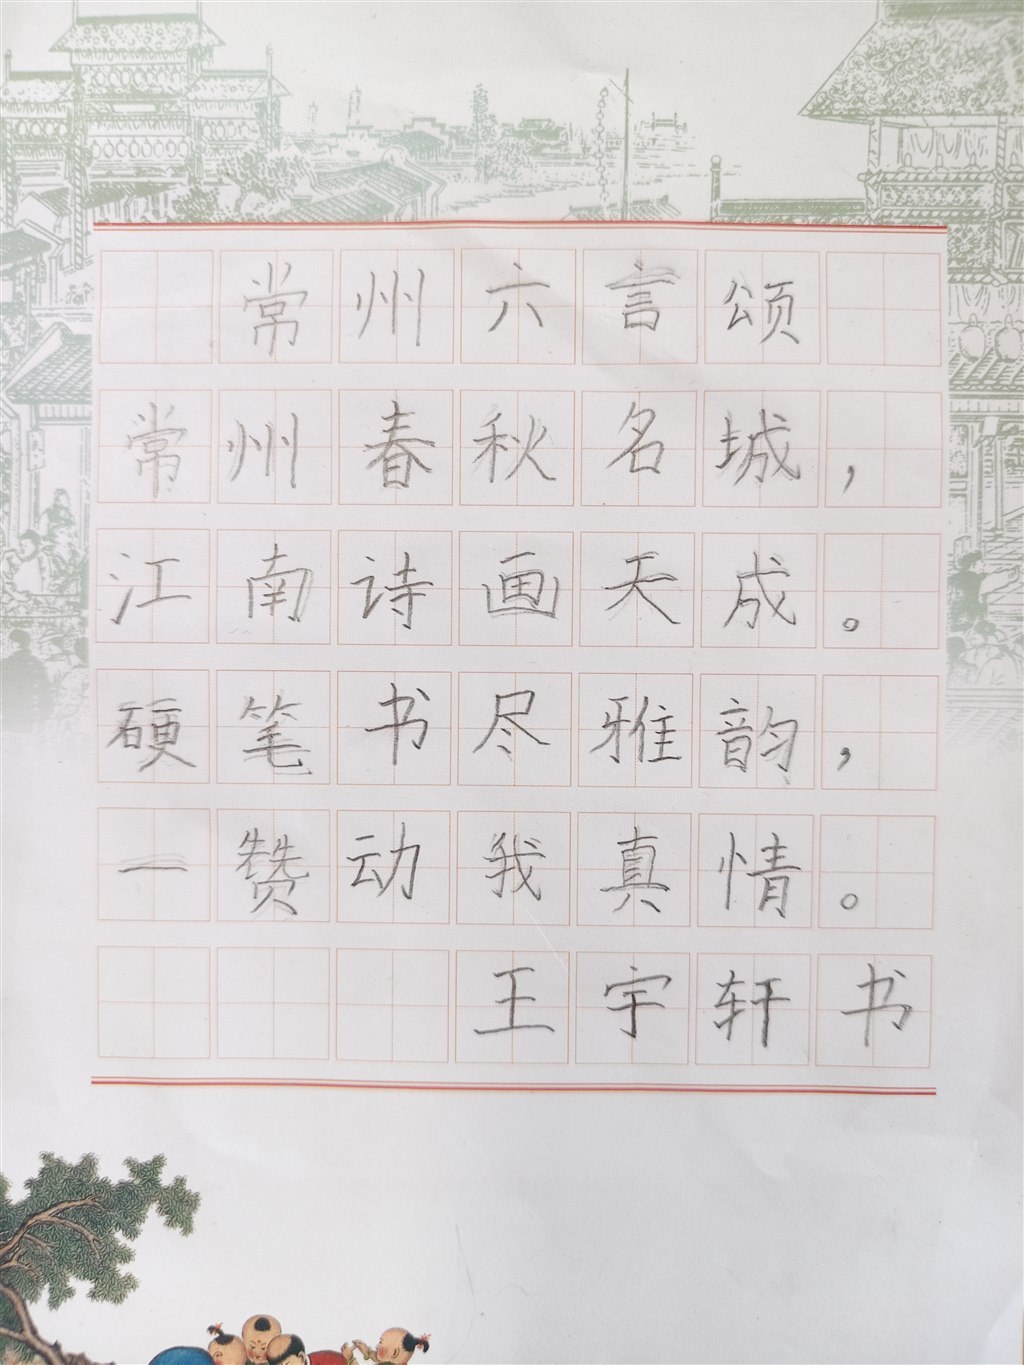 常州六言颂
常州春秋名城，
江南诗画天成。
硬笔书尽雅韵，
一赞动我真情。
王宇轩书